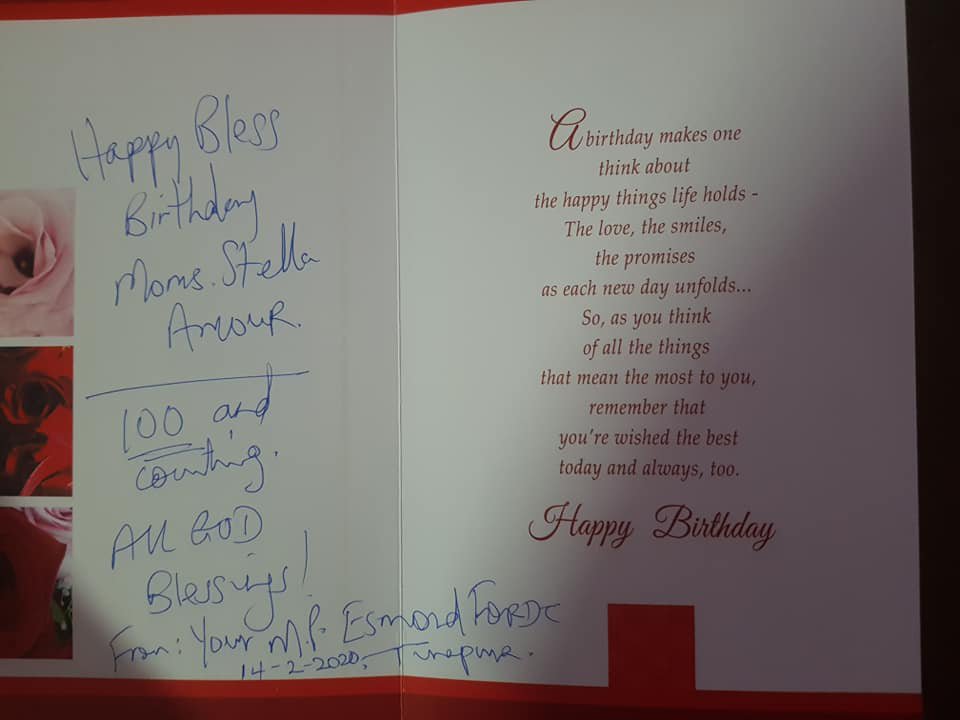 Happy Bless
Birthday
Moms. Stella
Amour.
100 and
counting.
All GOD
Blessings!
From: Your M.P. Esmond FORDE
14-2-2020, Tunapuna.
A birthday makes one
think about
the happy things life holds -
The love, the smiles,
the promises
as each new day unfolds...
So, as you think
of all the things
that mean the most to you,
remember that
you're wished the best
today and always, too.
Happy Birthday